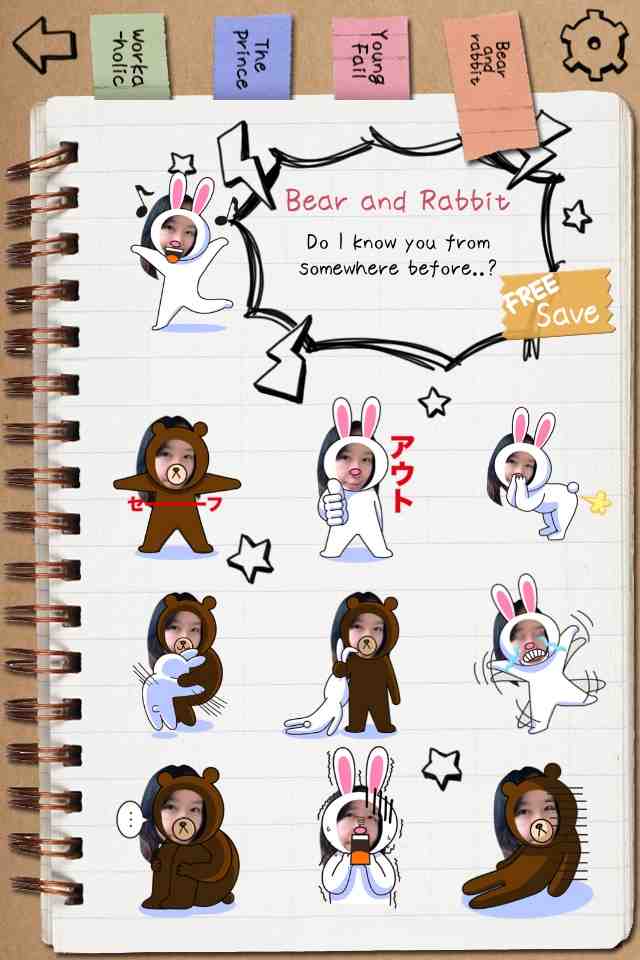 Worka
-holic
The
prince
Young
Fail
Bear
and
rabbit
Bear and Rabbit
Do I know you from
somewhere before..?
FREE
Save
セーフ
アウト
...